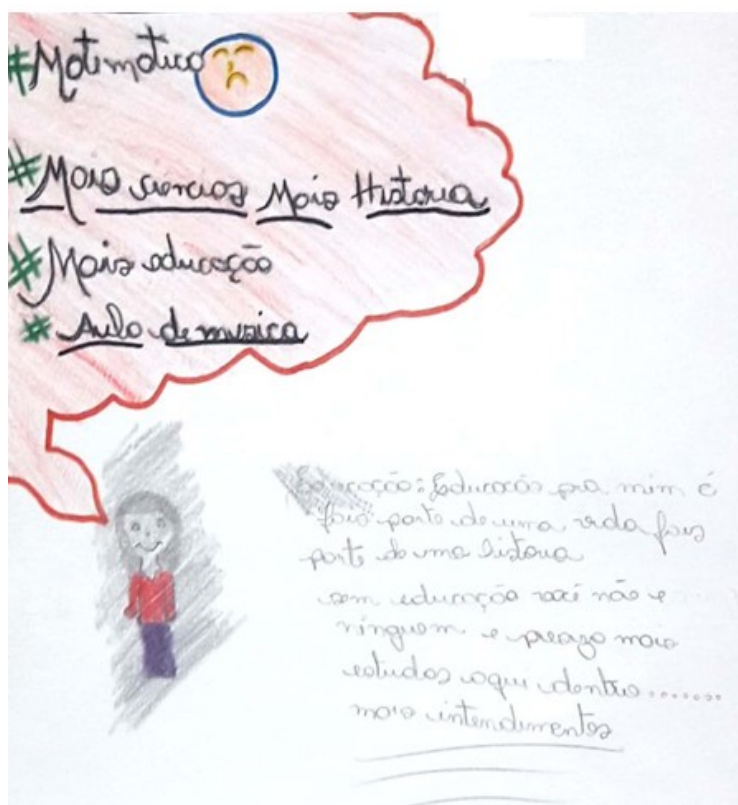 #Matematica
#Mais ciencias Mais Historia
#Mais educação
# Aula de musica
Educação: Educação pra mim é
fais parte de uma vida fais
parte de uma istoria
sem educação você não e
ninguem e preazo mais
estudos aqui dentro.......
mais intendimentos